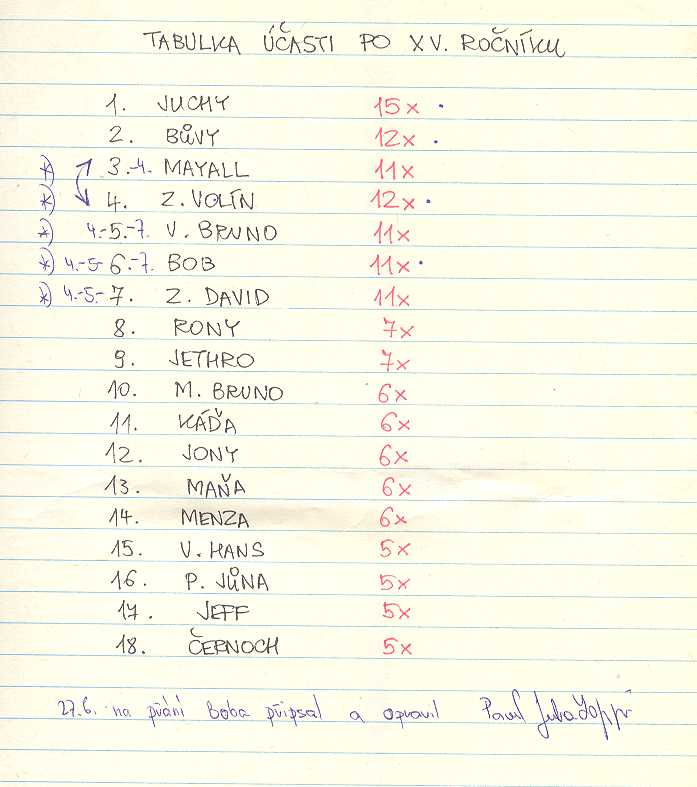 TABULKA ÚČASTI PO XV. ROČNÍKU
1. JUCHY 15x •
2. BŮVY 12x •
*) 3.-4. MAYALL 11x
*) 4. Z. VOLÍN 12x •
*) 4.-5.-7. V. BRUNO 11x
*) 4.-5-6.-7. BOB 11x •
*) 4.-5.-7. Z. DAVID 11x
8. RONY 7x
9. JETHRO 7x
10. M. BRUNO 6x
11. KÁĎA 6x
12. JONY 6x
13. MAŇA 6x
14. MENZA 6x
15. V. HANS 5x
16. P. JŮNA 5x
17. JEFF 5x
18. ČERNOCH 5x
27.6. na přání Boba připsal a opravil Pavel